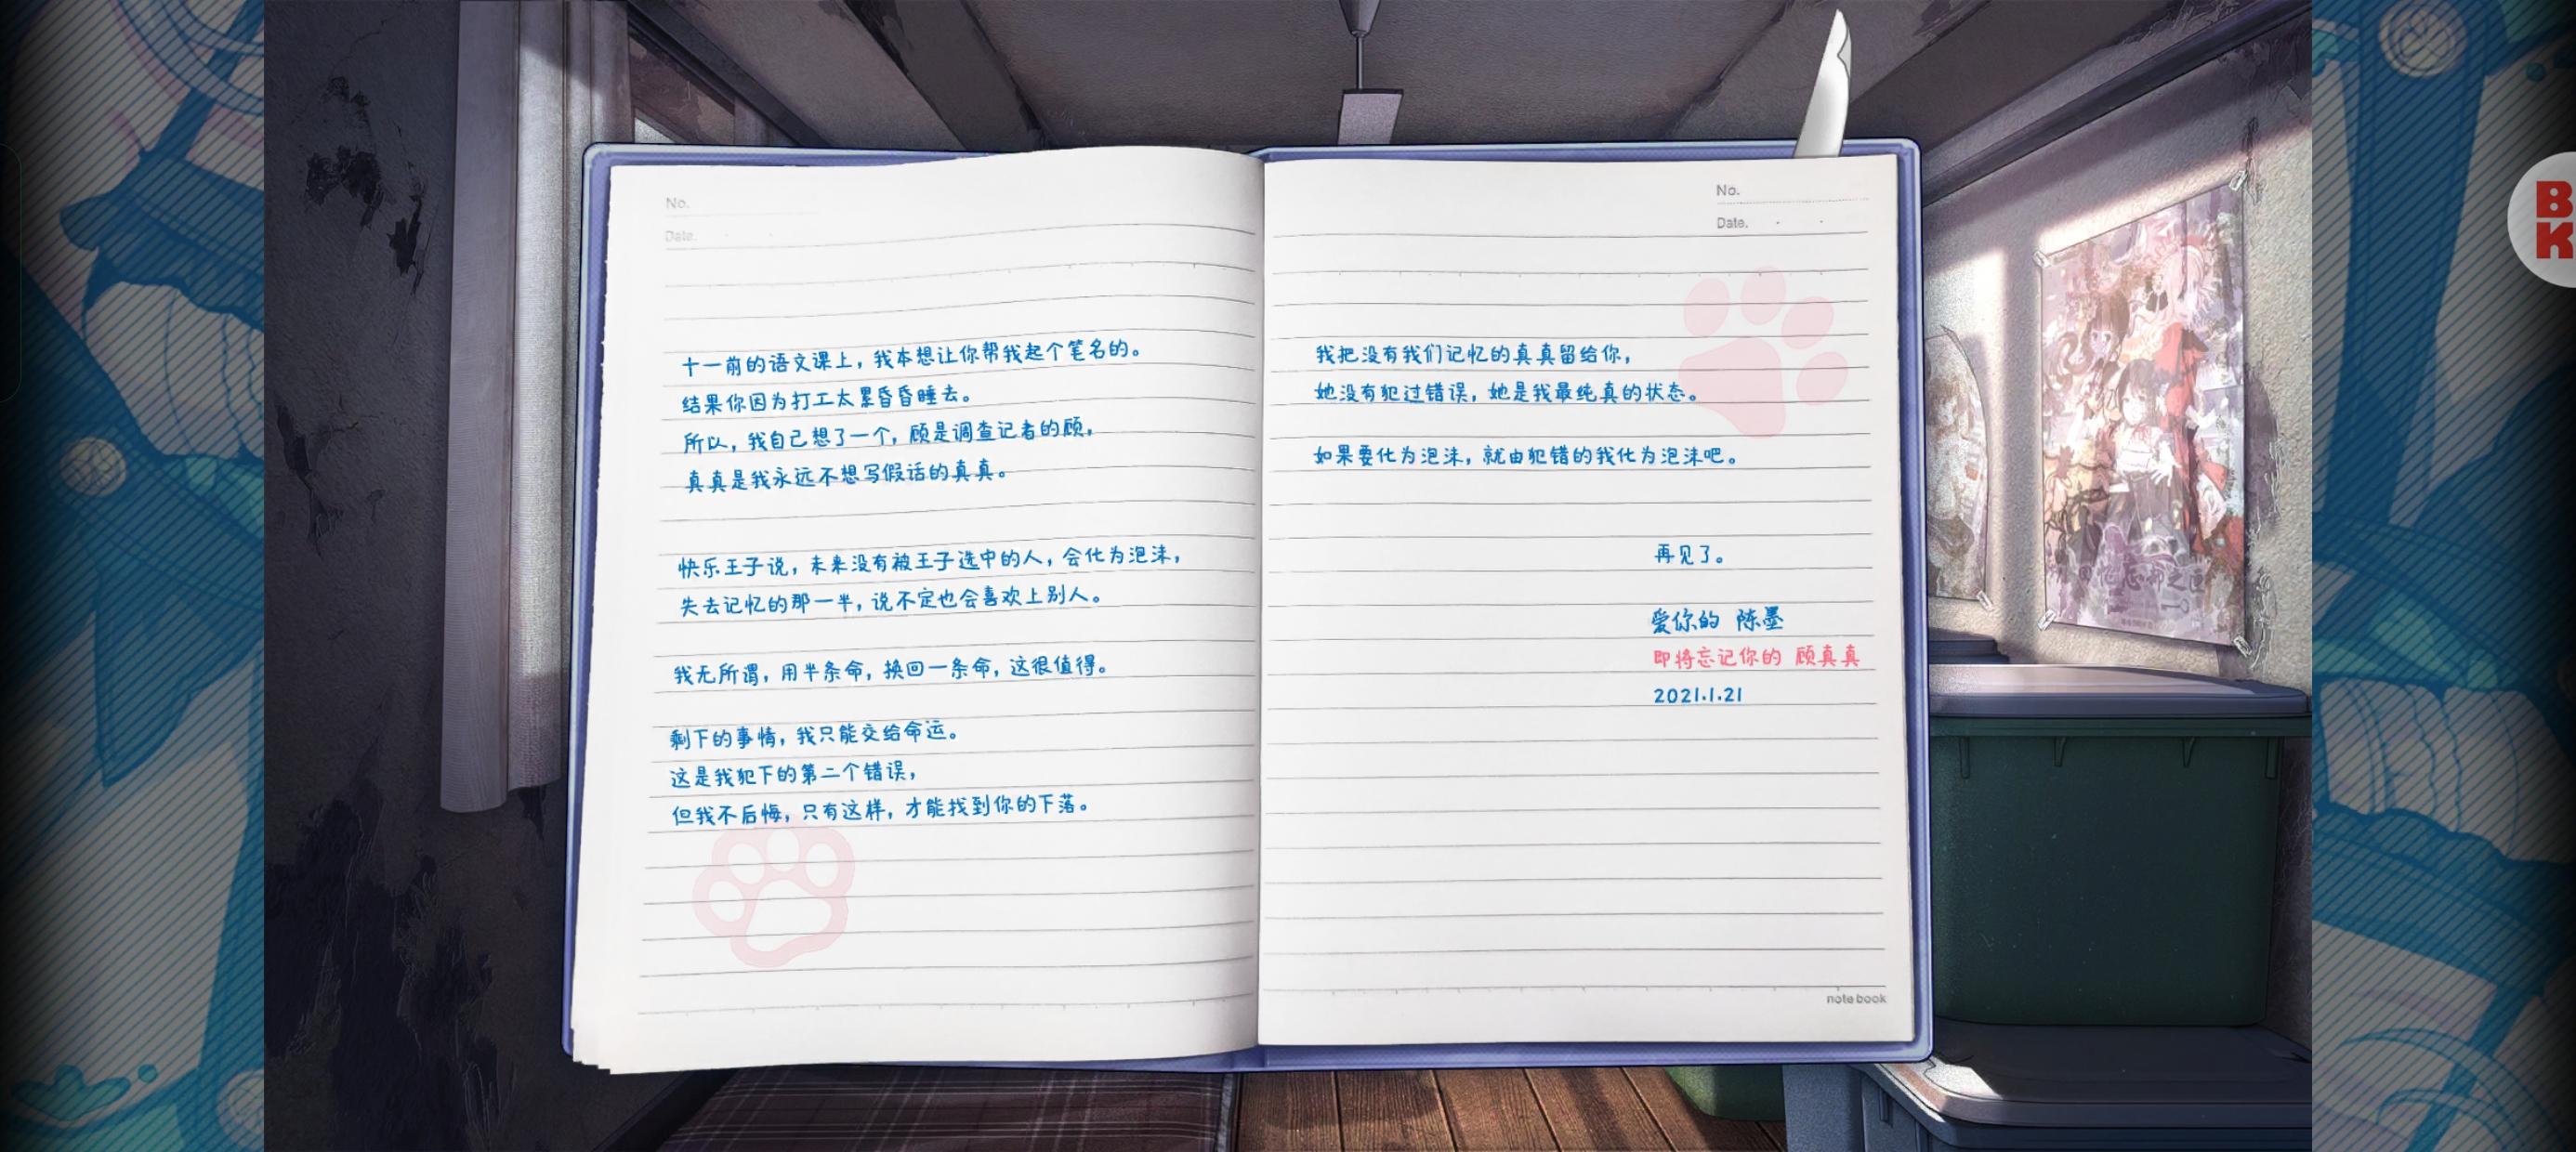 No.
Date.
十一前的语文课上，我本想让你帮我起个笔名的。
结果你因为打工太累昏昏睡去。
所以，我自己想了一个，顾是调查记者的顾，
真真是我永远不想写假话的真真。
快乐王子说，未来没有被王子选中的人，会化为泡沫，
失去记忆的那一半，说不定也会喜欢上别人。
我无所谓，用半条命，换回一条命，这很值得。
剩下的事情，我只能交给命运。
这是我犯下的第二个错误，
但我不后悔，只有这样，才能找到你的下落。
No.
Date.
我把没有我们记忆的真真留给你，
她没有犯过错误，她是我最纯真的状态。
如果要化为泡沫，就由犯错的我化为泡沫吧。
再见了。
爱你的 陈墨
即将忘记你的 顾真真
2021.1.21
note book
BK